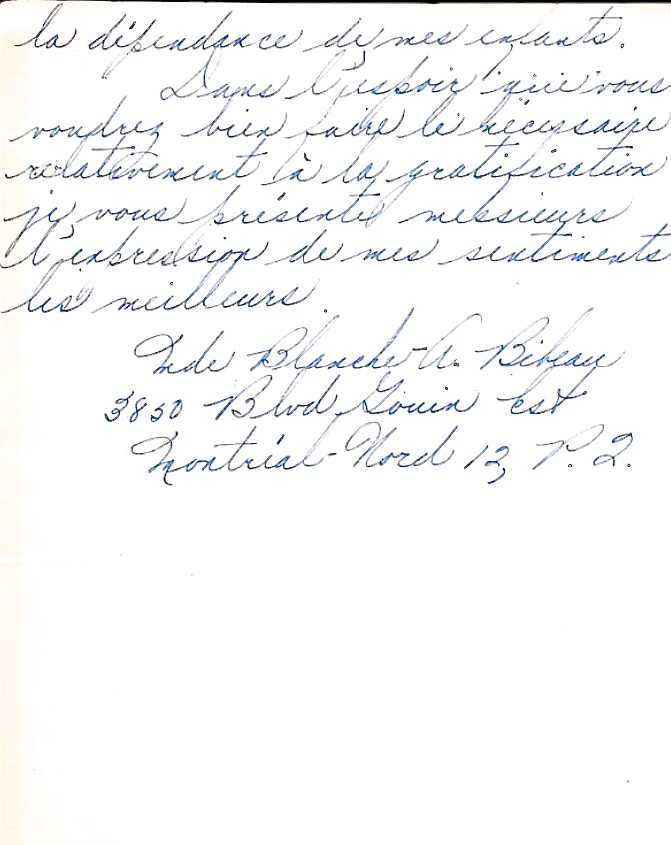 la dépendance de mes enfants.
Dans l'espoir que vous
voudrez bien faire le nécessaire
relativement à la gratification
je vous présente messieurs
l'expression de mes sentiments
les meilleurs.
Mde Blanche-A. Bibeau
3850 Blvd Gouin Est
Montréal-Nord 12, P. Q.